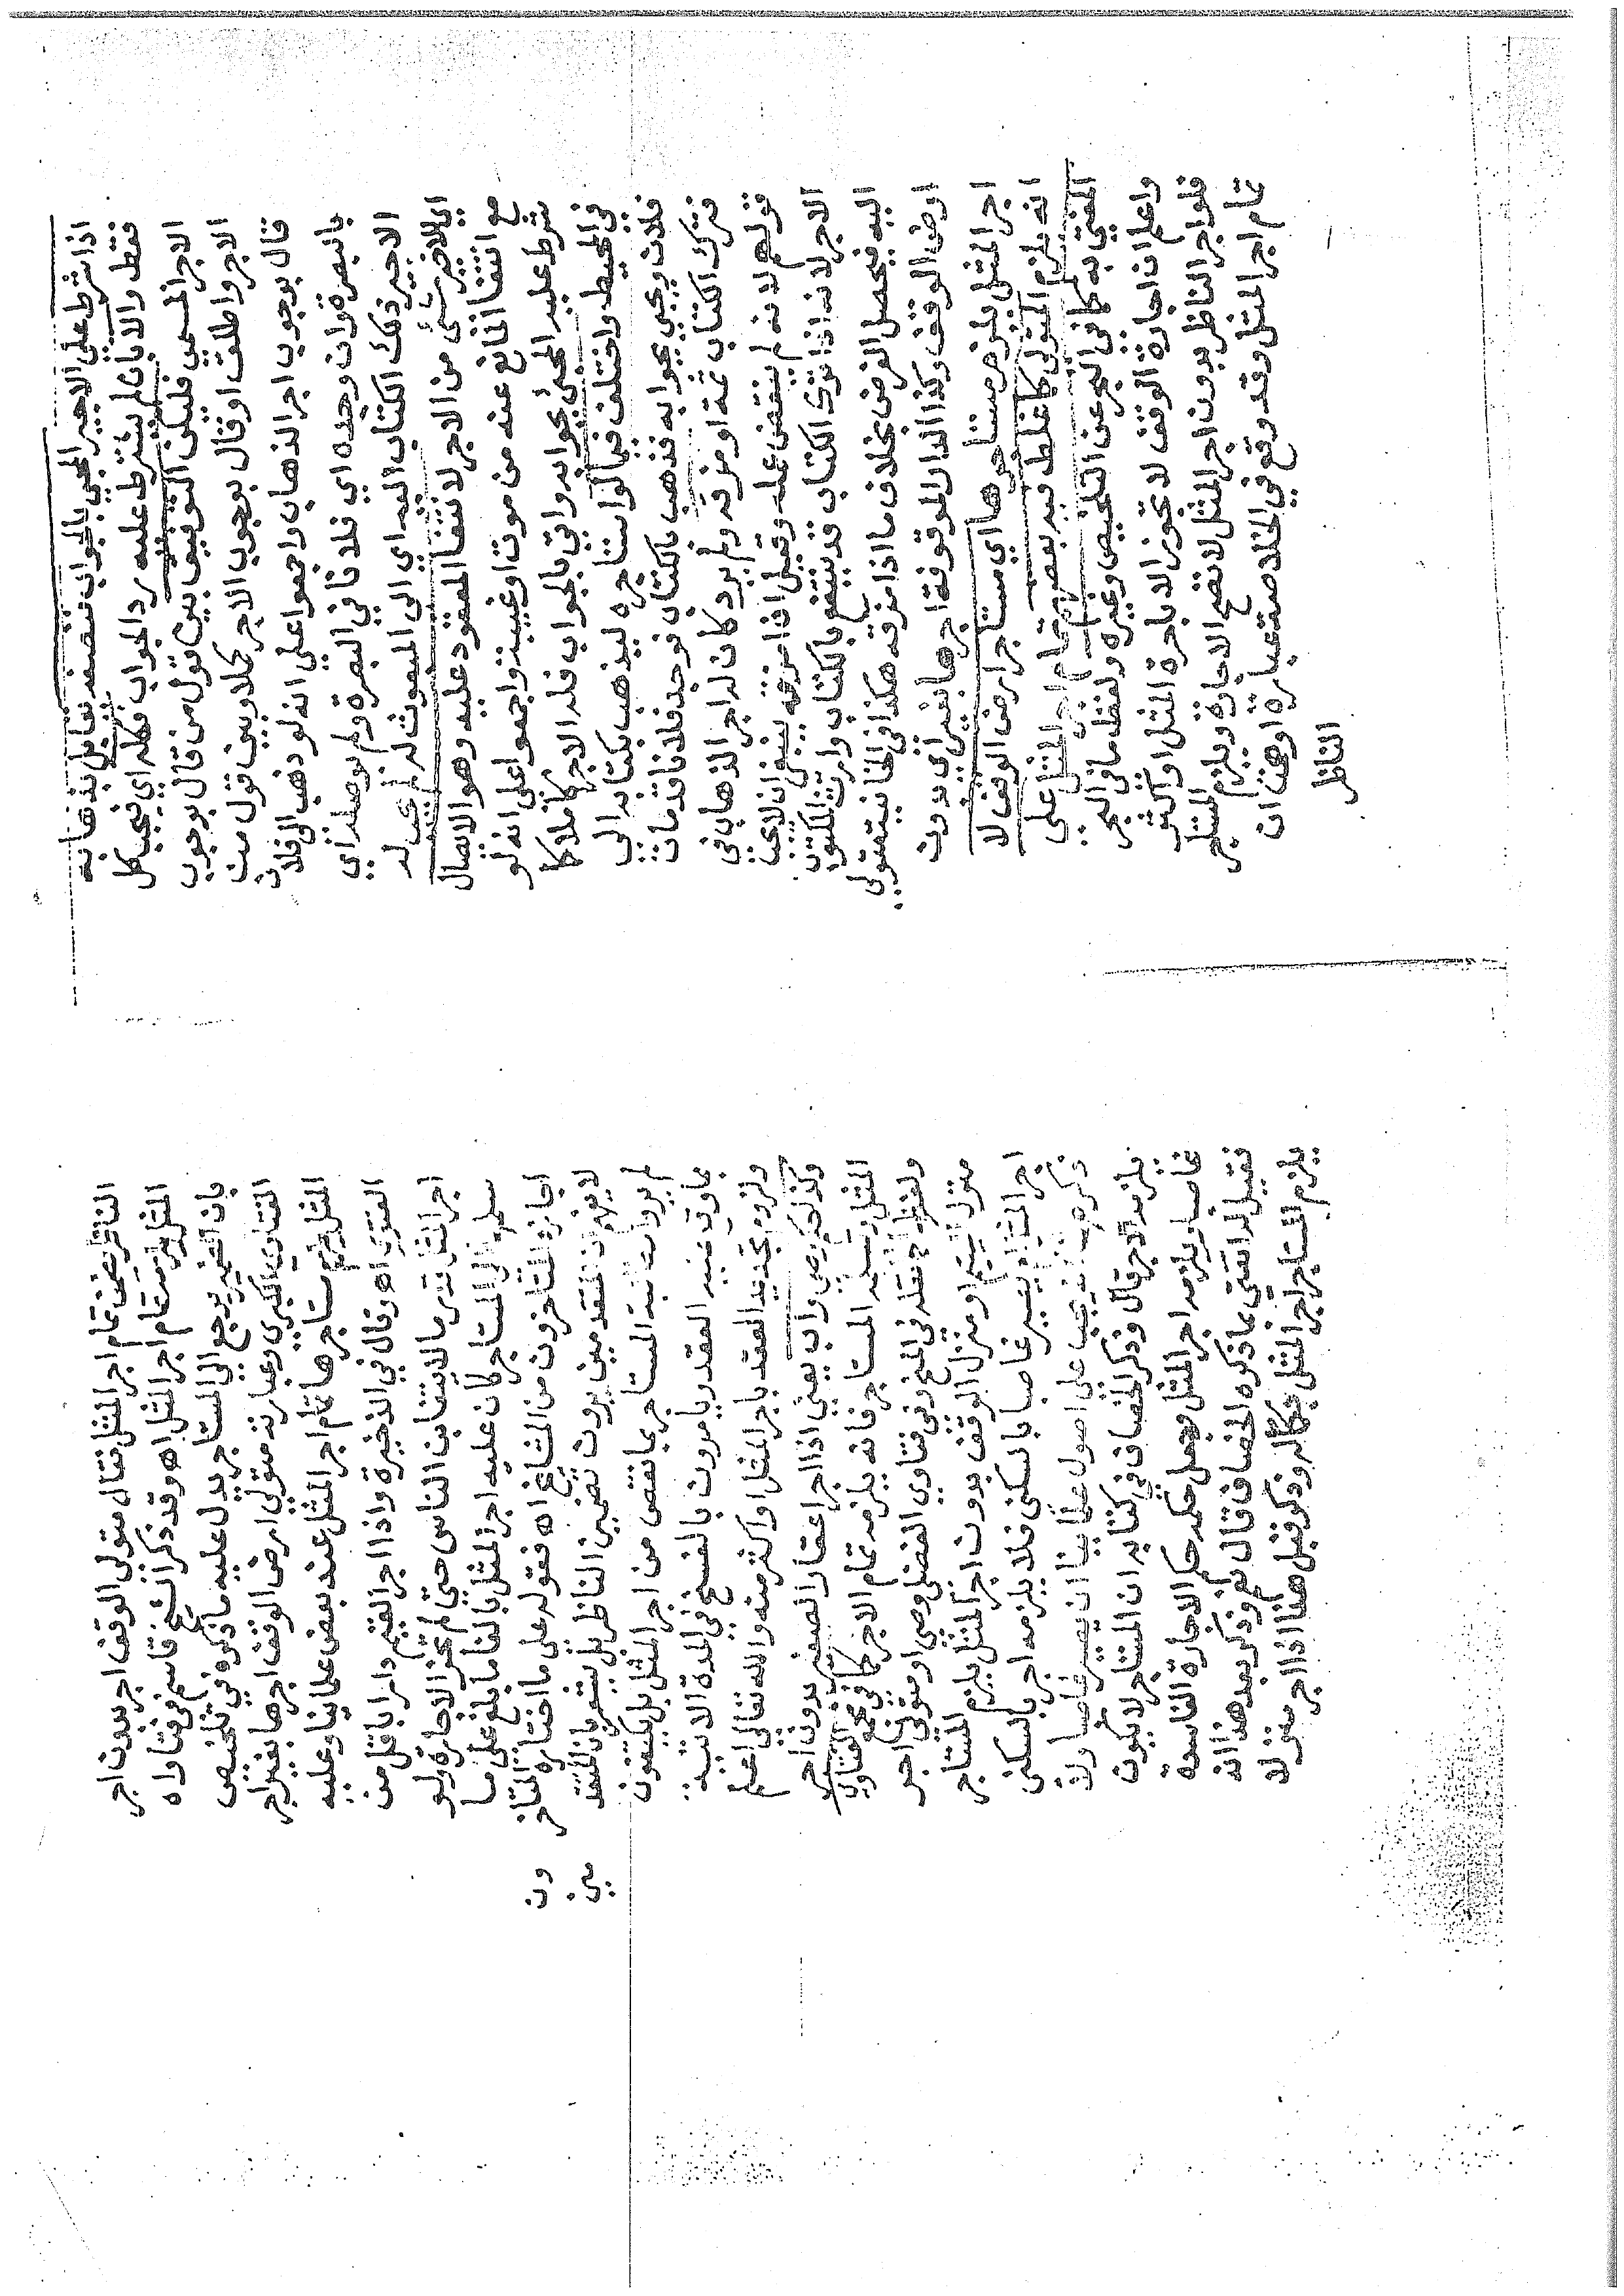 اذا شرط على الاجير المجي بالجواب نصفه يقابل بذهابه
فقط والا بان لم يشترط عليه رد الجواب فكله اي فيجب كل
الاجر المسمى فليكن التوفيق بين قول من قال بوجوب
الاجر واطلق او قال بوجوب الاجر كملا وبين قول من
قال بوجوب اجر الذهاب واجمعوا على انه لو ذهب الى فلان
بالبصرة وان وجده اي فلانا في البصرة ولم يوصله اي
الاجير ذلك الكتاب اليه اي الى المبعوث له لم يجب له
اي للاجير شئ من الاجر لانتفا المعقود عليه وهو الايصال
مع انتفا المانع عنه من موت او غيبة واجمعوا على انه لو
شرط عليه المجئ بجوابه واتي بالجواب فله الاجر كاملا كما
في المحيط واختلف فيما لو استاجره ليذهب بكتابه الى
فلان ويجيئ بجوابه فذهب بالكتاب فوجد فلانا قد مات
فترك الكتاب ثمة او مزقه ولم يرد كان له اجر الذهاب في
قولهم لانه لم ينتقض عمله وقيل اذا مزقه ينبغي ان لا يجب
الاجر لانه اذا الكتاب قد ينتفع بالكتاب وارث المكتوب
اليه فيحصل الغرض بخلاف ما اذا مزقه هكذا في الخانية متولي
ارض الوقف وكذا الدار الموقوفة اجرها بغير اي بدون
اجر المثل يلزم مستاجرها اي مستاجر ارض الوقف لا
انه يلزم المتولي كما غلط فيه بعضهم تمام اجر المثل على
المفتي به كما في البحر عن التلخيص وغيره ولفظ ما في البحر
واعلم ان اجارة الوقف لا تجوز الا باجرة المثل او اكثر
فلو اجر الناظر بدون اجر المثل لا تصح الاجارة ويلزم المستاجر
تمام اجر المثل وقد وقع في الخلاصة عبارة اوهمت ان
الناظر
الناظر يضمن تمام اجر المثل فقال متولي الوقف اجر بدون اجر
المثل يلزمه تمام اجر المثل اه وقد ذكر الشيخ قاسم في فتاواه
بان الضمير يرجع الى المستاجر يدل عليه ما ذكره في تلخيص
الفتاوى الكبرى وعبارته متولي ارض الوقف اجرها بغير اجر
المثل يلزم مستاجرها تمام اجر المثل عند بعض علمائنا وعليه
الفتوى اه وقال في الذخيرة واذا اجر القيم دارا باقل من
اجر المثل قدر ما لا يتغابن الناس حتي لم تجز الاجارة ولو
سكن المستاجر كان عليه اجر المثل بالغا ما بلغ على ما
اجازه المتاخرون من المشايخ اه فقوله على ما اختاره المتاخر
ون
لا يفهم ان المتقدمين يرون تضمين الناظر بل يشعر بان المتقد
مين
لم يروا مطالبة المستاجر بما نقص من اجر المثل بل يكتفون
بما وقع عليه العقد ويامرون بالفسخ في المدة الاتية
ولزوم تجديد العقد باجر المثل او اكثر منه والله تعالى اعلم
وكذا حكم وصي واب يعني اذا اجرا عقار الصغير بدون اجر
المثل وتسلمه المستاجر فانه يلزمه تمام الاجر كما في مجمع الفتاوى
ولفظ ما نقله في المنح وفي فتاوي الفضلي وصي او متولي اجر
منزل اليتيم او منزل الوقف بدون اجر المثل يلزم المستاجر
اجر المثل ام يصير غاصبا بالسكنى فلا يلزمه اجر بالسكنى
ذكر انه يجب على اصول علمائنا ان يصير غاصبا ولا
يلزمه الاجر قال وذكر الخصاف في كتابه ان المستاجر لا يكون
غاصبا ويلزمه اجر المثل ويجعل حكمه حكم الاجارة الفاسدة
فقيل له اتفتي بما ذكره الخصاف فقال نعم وذكر بعد هذا انه
يلزم المستاجر اجر المثل وذكر قبل هذا اذا اجر منزلا